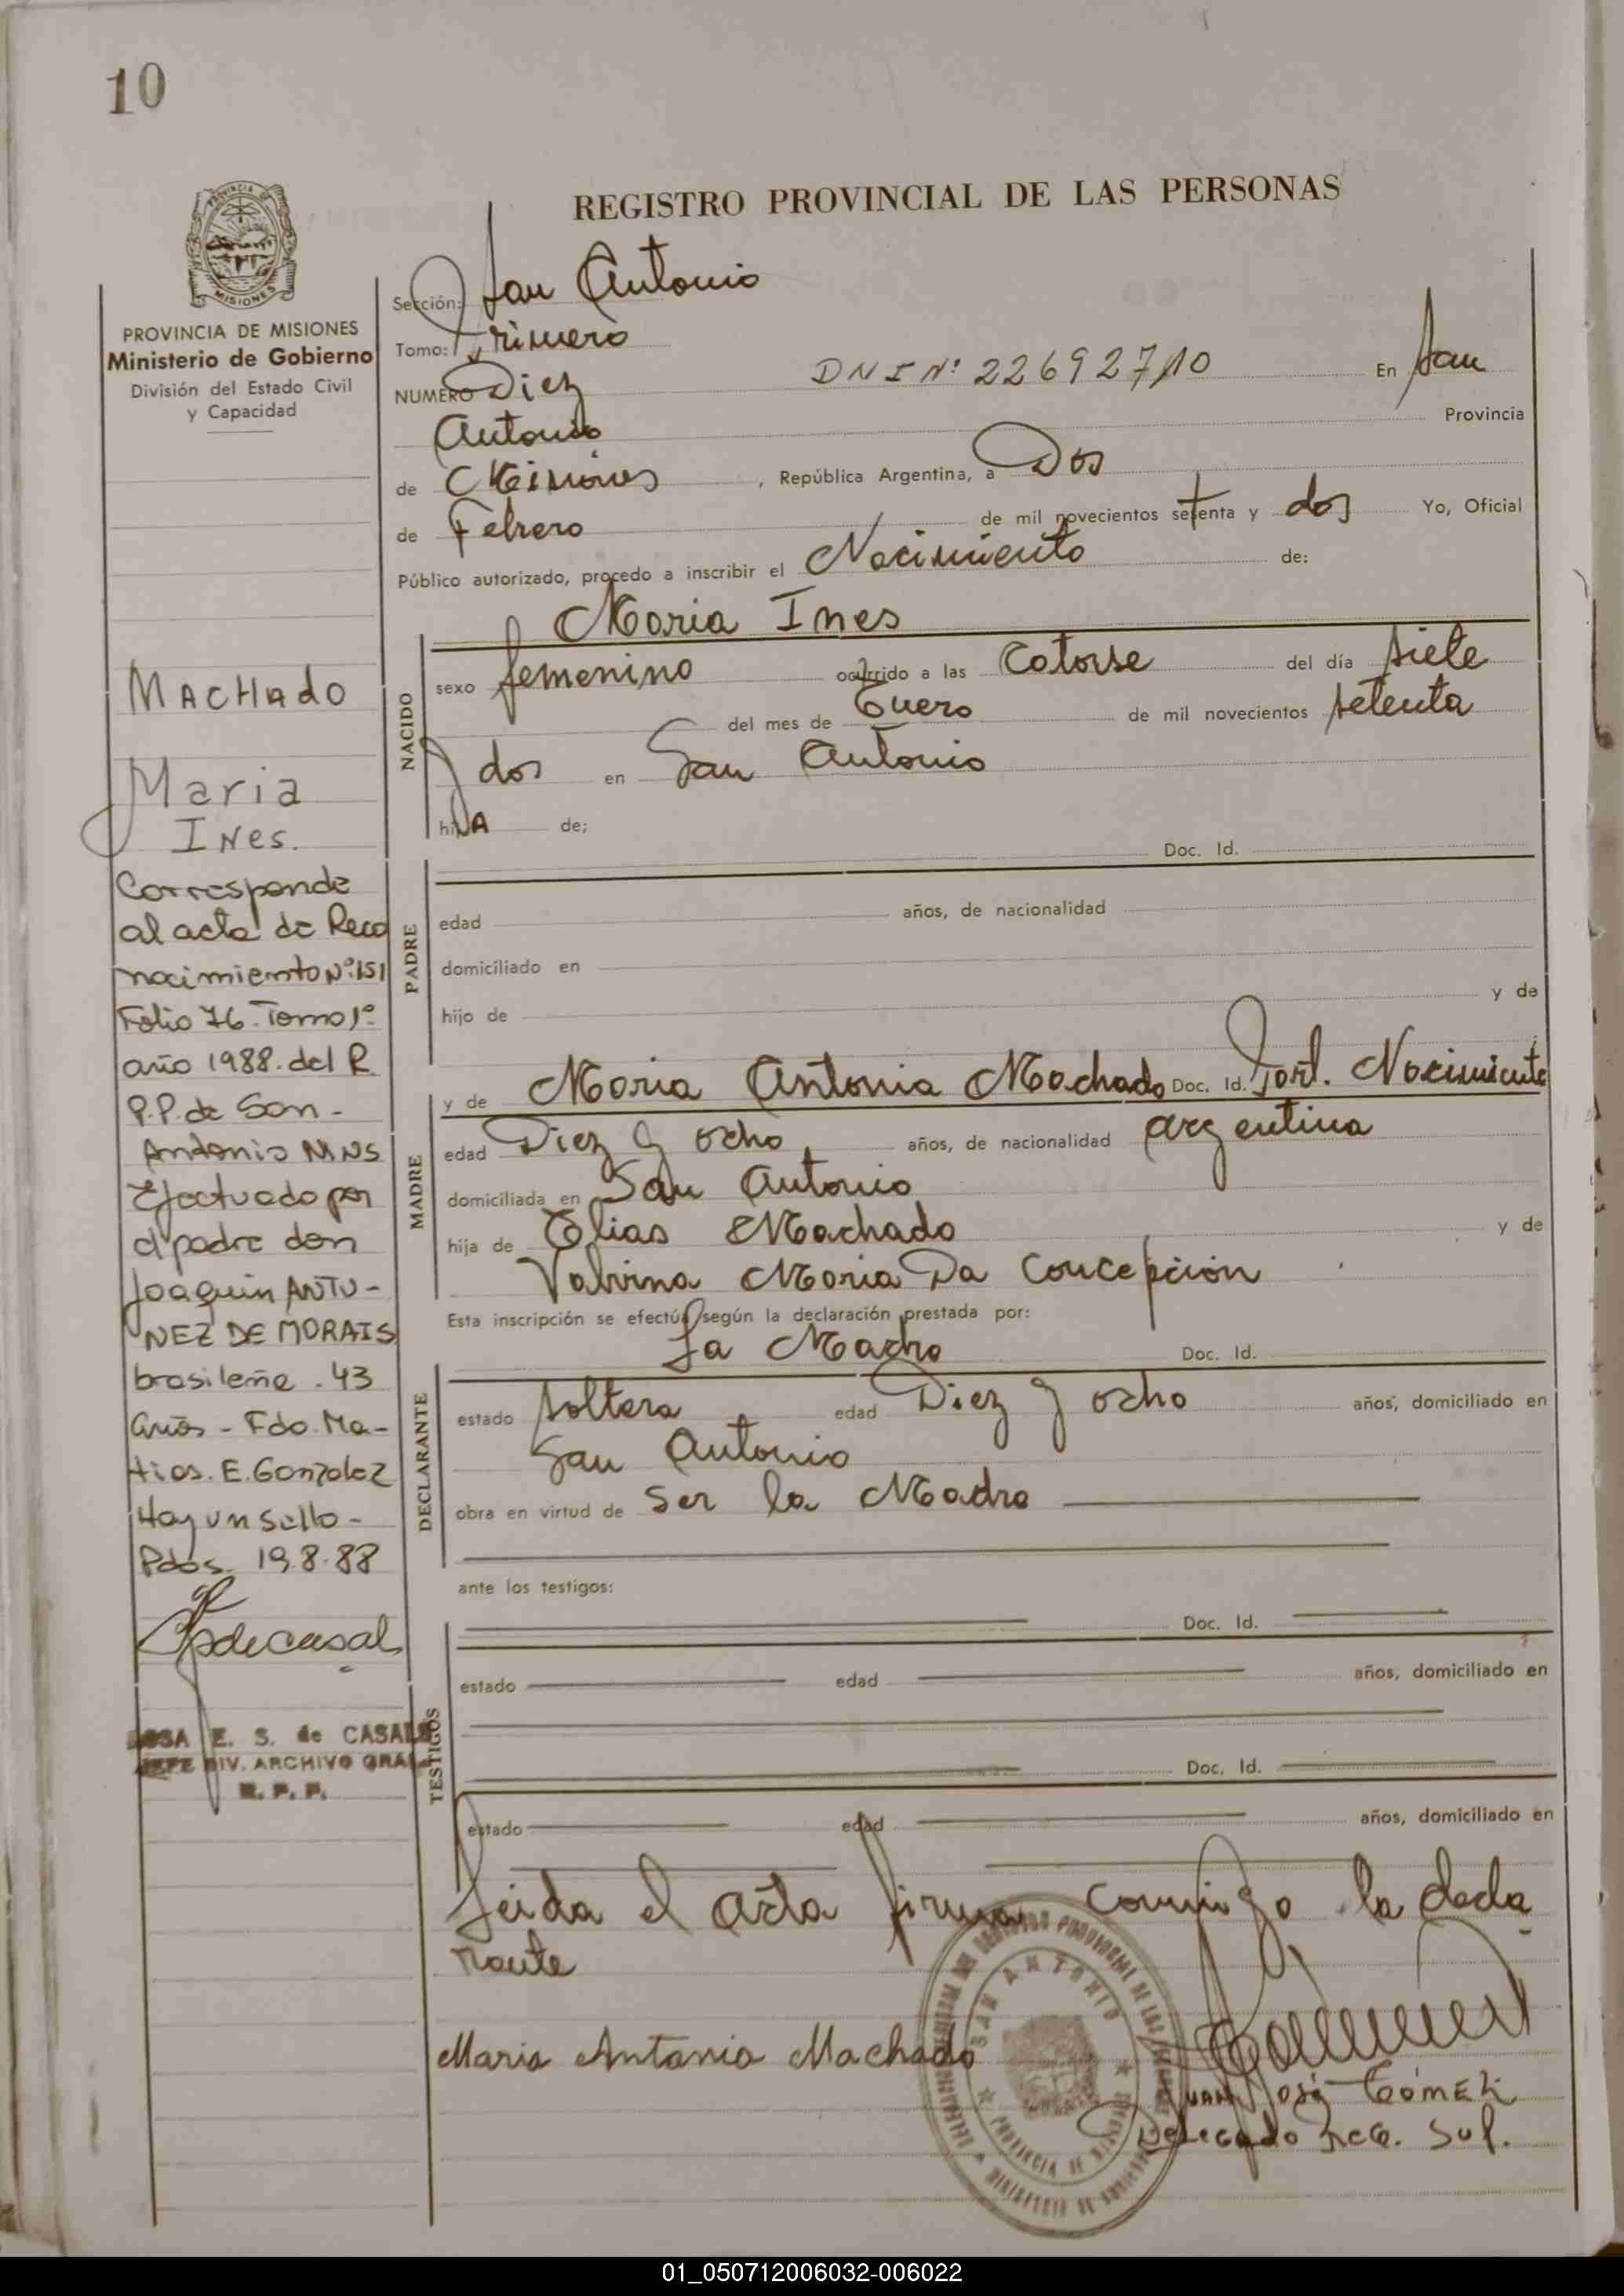 10
REGISTRO PROVINCIAL DE LAS PERSONAS
PROVINCIA DE
MISIONES
PROVINCIA DE MISIONES
Ministerio de Gobierno
División del Estado Civil
y Capacidad
MACHado
Maria
INes.
Corresponde
al acta de Reco
nocimiento Nº 151
Folio 76. Tomo 1º
año 1988. del R.
P.P. de San -
Antonio MNS
Efectuado por
el padre don
Joaquin ANTU-
NEZ DE MORAIS
brasileño . 43
años - Fdo. Ma-
tias. E. Gonzalez
Hay un sello -
Pdas. 19.8.88
Rdecasal
ROSA E. S. de CASALS
JEFE DIV. ARCHIVO GRAL
R. P. P.
Sección: San Antonio
Tomo: Primero
NUMERO Diez DNI Nº 22692710 En San
Antonio Provincia
de Misiones , República Argentina, a Dos
de Febrero de mil novecientos setenta y dos Yo, Oficial
Público autorizado, procedo a inscribir el Nacimiento de:
Maria Ines
NACIDO
sexo femenino ocurrido a las Catorse del día siete
del mes de Enero de mil novecientos setenta
y dos en San Antonio
hijA de;
Doc. Id.
PADRE
edad años, de nacionalidad
domiciliado en
hijo de y de
MADRE
y de Maria Antonia Machado Doc. Id. Part. Nacimiento
edad Diez y ocho años, de nacionalidad argentina
domiciliada en San Antonio
hija de Elias Machado y de
Valvina Maria Da Concepción
Esta inscripción se efectúa según la declaración prestada por:
La Madre Doc. Id.
DECLARANTE
estado soltera edad Diez y ocho años, domiciliado en
San Antonio
obra en virtud de Ser la Madre
ante los testigos:
Doc. Id.
TESTIGOS
estado edad años, domiciliado en
Doc. Id.
estado edad años, domiciliado en
Leida el acta firma conmigo la decla
rante
Maria Antonia Machado
SAN ANTONIO
PROVINCIA DE MISIONES
JUAN José GÓMEZ
Delegado Reg. Sup.
01_050712006032-006022